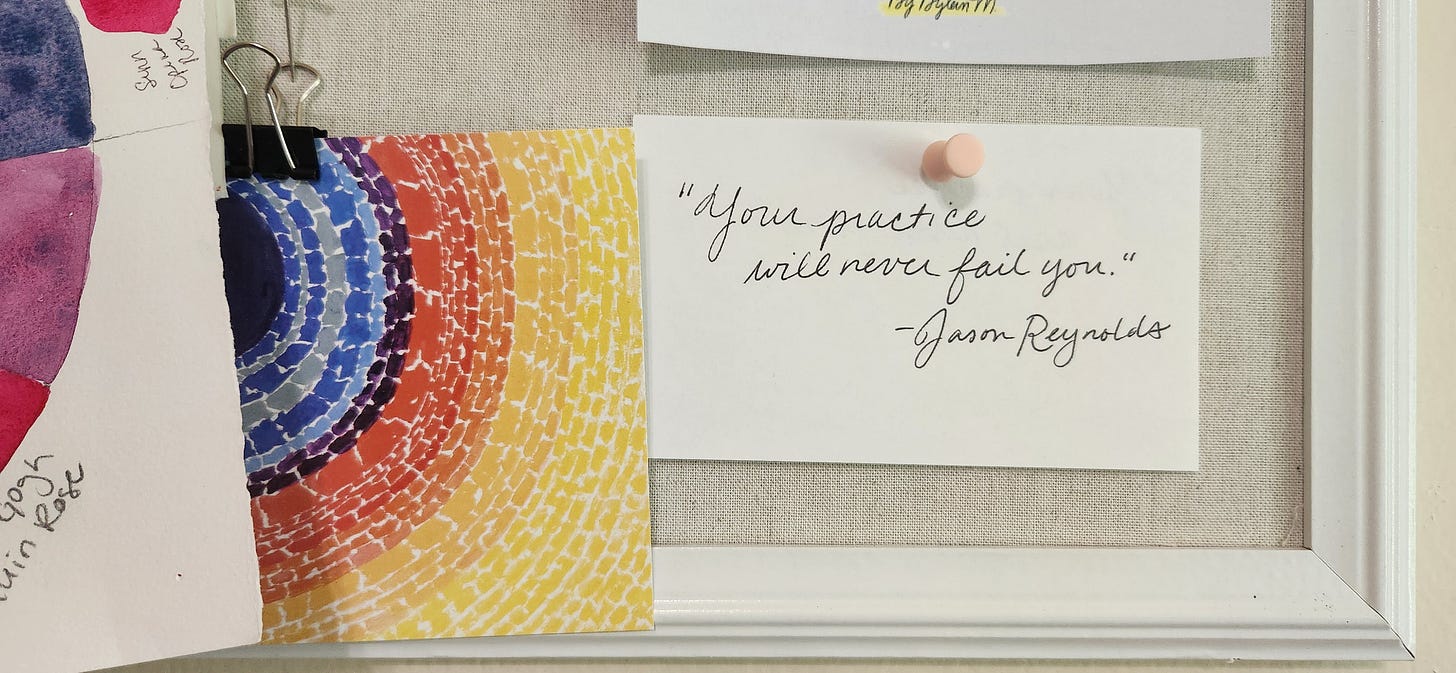 By Dylan M.
Senn
Opera
Rose
"Your practice
will never fail you."
-Jason Reynolds
Gogh
Rose